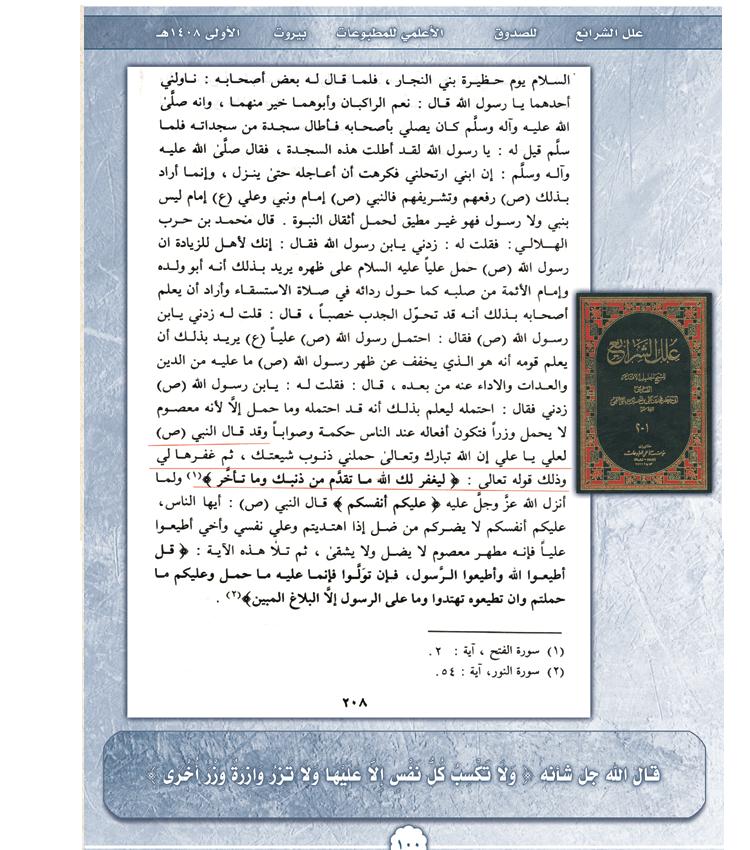 علل الشرائع للصدوق الأعلمي للمطبوعات بيروت الأولى ١٤٠٨هـ
السلام يوم حظيرة بني النجار ، فلما قال له بعض أصحابه : ناولني
أحدهما يا رسول الله قال : نعم الراكبان وأبوهما خير منهما ، وانه صلَّى
الله عليه وآله وسلَّم كان يصلي بأصحابه فأطال سجدة من سجداته فلما
سلَّم قيل له : يا رسول الله لقد أطلت هذه السجدة ، فقال صلَّى الله عليه
وآله وسلَّم : إن ابني ارتحلني فكرهت أن أعاجله حتى ينزل ، وإنما أراد
بذلك (ص) رفعهم وتشريفهم فالنبي (ص) إمام ونبي وعلي (ع) إمام ليس
بنبي ولا رسول فهو غير مطيق لحمل أثقال النبوة . قال محمد بن حرب
الهلالي : فقلت له : زدني يابن رسول الله فقال : إنك لأهل للزيادة ان
رسول الله (ص) حمل علياً عليه السلام على ظهره يريد بذلك أنه أبو ولده
وإمام الأئمة من صلبه كما حول ردائه في صلاة الاستسقاء وأراد أن يعلم
أصحابه بذلك أنه قد تحوّل الجدب خصباً ، قال : قلت له زدني يابن
رسول الله (ص) فقال : احتمل رسول الله (ص) علياً (ع) يريد بذلك أن
يعلم قومه أنه هو الذي يخفف عن ظهر رسول الله (ص) ما عليه من الدين
والعدات والاداء عنه من بعده ، قال : فقلت له : يابن رسول الله (ص)
زدني فقال : احتمله ليعلم بذلك أنه قد احتمله وما حمل إلَّا لأنه معصوم
لا يحمل وزراً فتكون أفعاله عند الناس حكمة وصواباً وقد قال النبي (ص)
لعلي يا علي إن الله تبارك وتعالى حملني ذنوب شيعتك ، ثم غفرها لي
وذلك قوله تعالى : ﴿ ليغفر لك الله ما تقدَّم من ذنبك وما تأخَّر ﴾(١) ولما
أنزل الله عزَّ وجلَّ عليه ﴿ عليكم أنفسكم ﴾ قال النبي (ص) : أيها الناس،
عليكم أنفسكم لا يضركم من ضل إذا اهتديتم وعلي نفسي وأخي أطيعوا
علياً فإنه مطهر معصوم لا يضل ولا يشقى ، ثم تلا هذه الآية : ﴿ قل
أطيعوا الله وأطيعوا الرَّسول، فإن تولَّوا فإنما عليه ما حمل وعليكم ما
حملتم وان تطيعوه تهتدوا وما على الرسول إلَّا البلاغ المبين﴾(٢) .
(١) سورة الفتح ، آية : ٢ .
(٢) سورة النور، آية : ٥٤.
٢٠٨
علل الشرائع
٢-١
قال الله جل شأنه ﴿ ولَا تَكْسِبُ كُلُّ نَفْسٍ إلَّا عَلَيْهَا ولا تَزِرُ وازِرةٌ وِزْرَ أخْرى ﴾
١٠٠